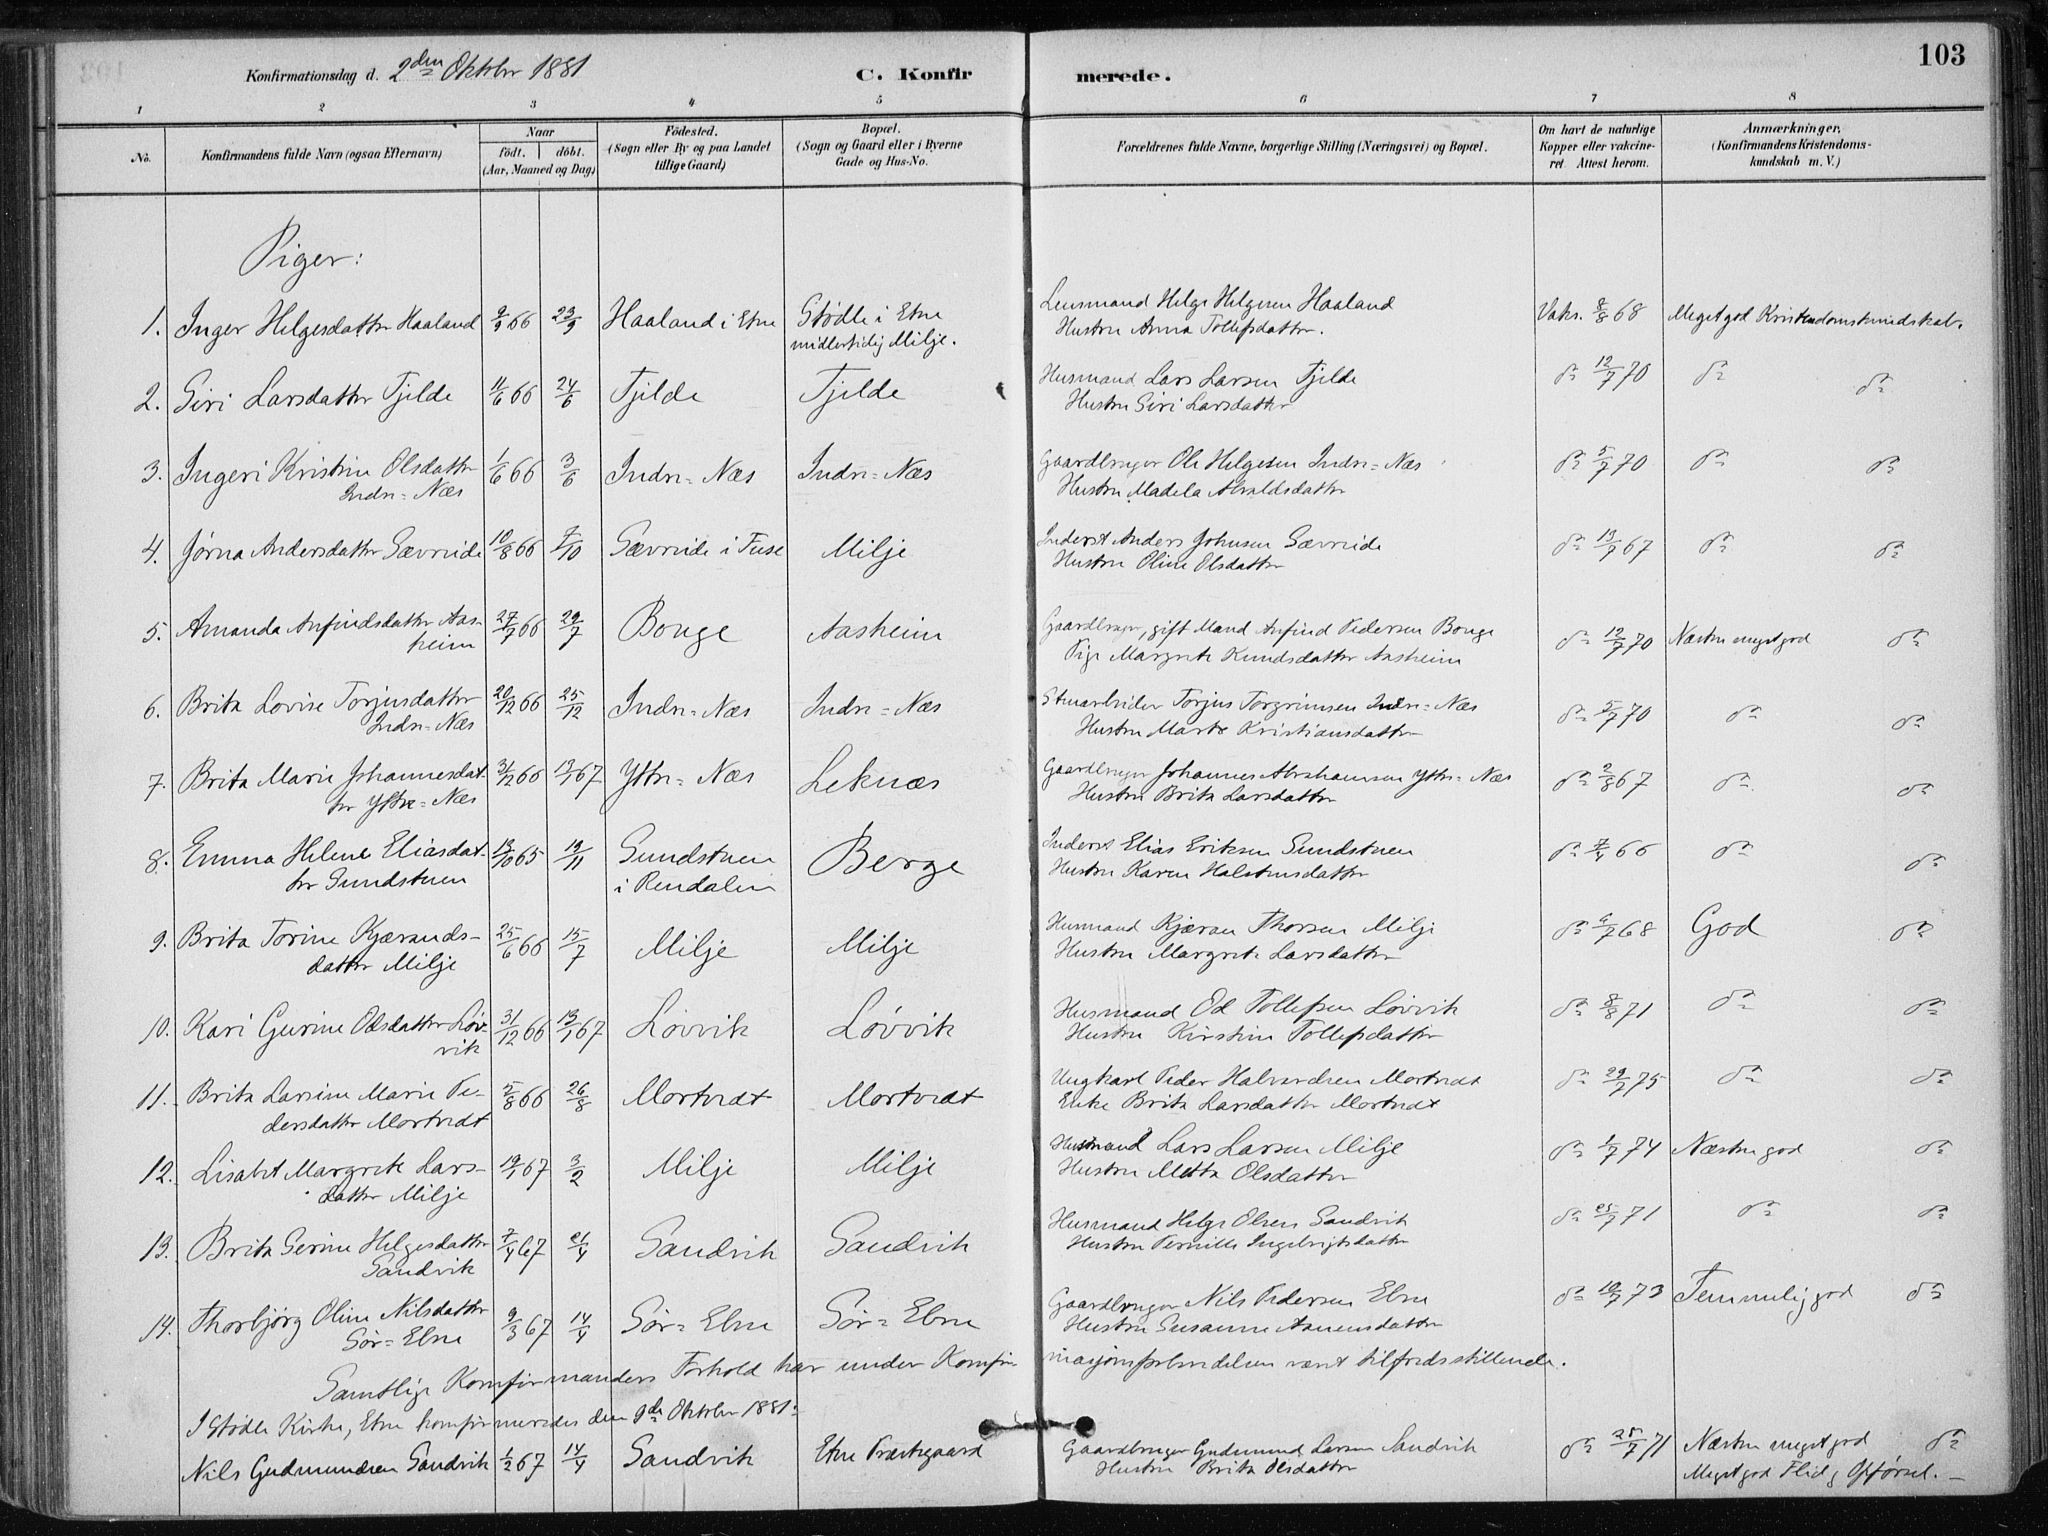 103
Konfirmationsdag d. 2den Oktober 1881 C. Konfirmerede.
1 2 3 4 5 6 7 8
No. Konfirmandens fulde Navn (ogsaa Efternavn) Naar födt. döbt. (Aar, Maaned og Dag) Födested. (Sogn eller By og paa Landet tillige Gaard) Bopæl. (Sogn og Gaard eller i Byerne Gade og Hus-No. Forældrenes fulde Navne, borgerlige Stilling (Næringsvei) og Bopæl. Om havt de naturlige Kopper eller vakcineret. Attest herom. Anmærkninger. (Konfirmandens Kristendomskundskab m. V.)
Piger:
1. Inger Helgesdatter Haaland 2/9 66 23/9 Haaland i Etne Stødle i Etne midlertidig Milje. Lensmand Helge Helgesen Haaland Hustru Anna Tollefsdatter. Vaks. 8/8 68 Meget god Kristendomskundskab.
2. Siri Larsdatter Tjelde 11/6 66 24/6 Tjelde Tjelde Husmand Lars Larsen Tjelde Hustru Siri Larsdatter do 12/7 70 do do
3. Ingeri Kristine Olsdatter Indre-Næs 1/6 66 3/6 Indre-Næs Indre-Næs Gaardbruger Ole Helgesen Indre-Næs Hustru Madela do 5/7 70 do do
4. Jørna Andersdatter Sævreide 10/8 66 7/10 Sævreide i Fuse Milje Inderst Anders Johnsen Sævreide Hustru Oline Olsdatter do 13/7 67 do do
5. Amanda Anfindsdatter Aasheim 27/7 66 29/7 Bouge Aasheim Gaardbruger, gift Mand Anfind Pedersen Bouge Pige Margrete Knudsdatter Aasheim do 12/7 70 Næsten meget god do
6. Brita Lovise Torjusdatter Indre-Næs 20/12 66 25/12 Indre-Næs Indre-Næs Stenarbeider Torjus Torgrimsen Indre-Næs Hustru Marta Kristiansdatter do 5/7 70 do do
7. Brita Marie Johannesdatter Ytre-Næs 31/12 66 13/1 67 Ytre-Næs Leknæs Gaardbruger Johannes Abrahamsen Ytre-Næs Hustru Brita Larsdatter do 2/8 67 do do
8. Emma Helene Eliasdatter Sundstuen 13/10 65 19/11 Sundstuen i Rendalen Berge Inderst Elias Eriksen Sundstuen Hustru Karen Halstensdatter do 7/4 66 do do
9. Brita Torine Kjærandsdatter Milje 25/6 66 15/7 Milje Milje Husmand Kjæran Thorsen Milje Hustru Margrete Larsdatter do 4/7 68 God do
10. Kari Gurine Odsdatter Løvvik 31/12 66 13/1 67 Løvvik Løvvik Husmand Od Tollefsen Løvvik Hustru Kirstine Tollefsdatter do 8/8 71 do do
11. Brita Larsine Marie Pedersdatter Mortvedt 5/8 66 26/8 Mortvedt Mortvedt Ungkarl Peder Halvardsen Mortvedt Enke Brita Larsdatter Mortvedt do 29/7 75 do do
12. Lisabet Margrete Larsdatter Milje 19/1 67 3/2 Milje Milje Husmand Lars Larsen Milje Hustru Metta Olsdatter do 1/7 74 Næsten god do
13. Brita Serine Helgesdatter Sandvik 7/4 67 21/4 Sandvik Sandvik Husmand Helge Olsen Sandvik Hustru Pernille Ingebrigtsdatter do 25/7 71 do do
14. Thorbjørg Oline Nilsdatter Sør-Ebne 9/3 67 14/4 Sør-Ebne Sør-Ebne Gaardbruger Nils Pedersen Ebne Hustru Susanne Asmunsdatter do 10/7 73 Temmelig god do
Samtlige Konfirmanders Forhold har under Konfirmasjonsforberedelsen været tilfredsstillende.
I Stødle Kirke, Etne konfirmeredes den 9de Oktober 1881:
Nils Gudmundsen Sandvik 1/2 67 14/4 Sandvik Etne Præstegaard Gaardbruger Gudmund Larsen Sandvik Hustru Brita Olsdatter do 25/7 71 Næsten meget god do
Meget god Flid og Opførsel.